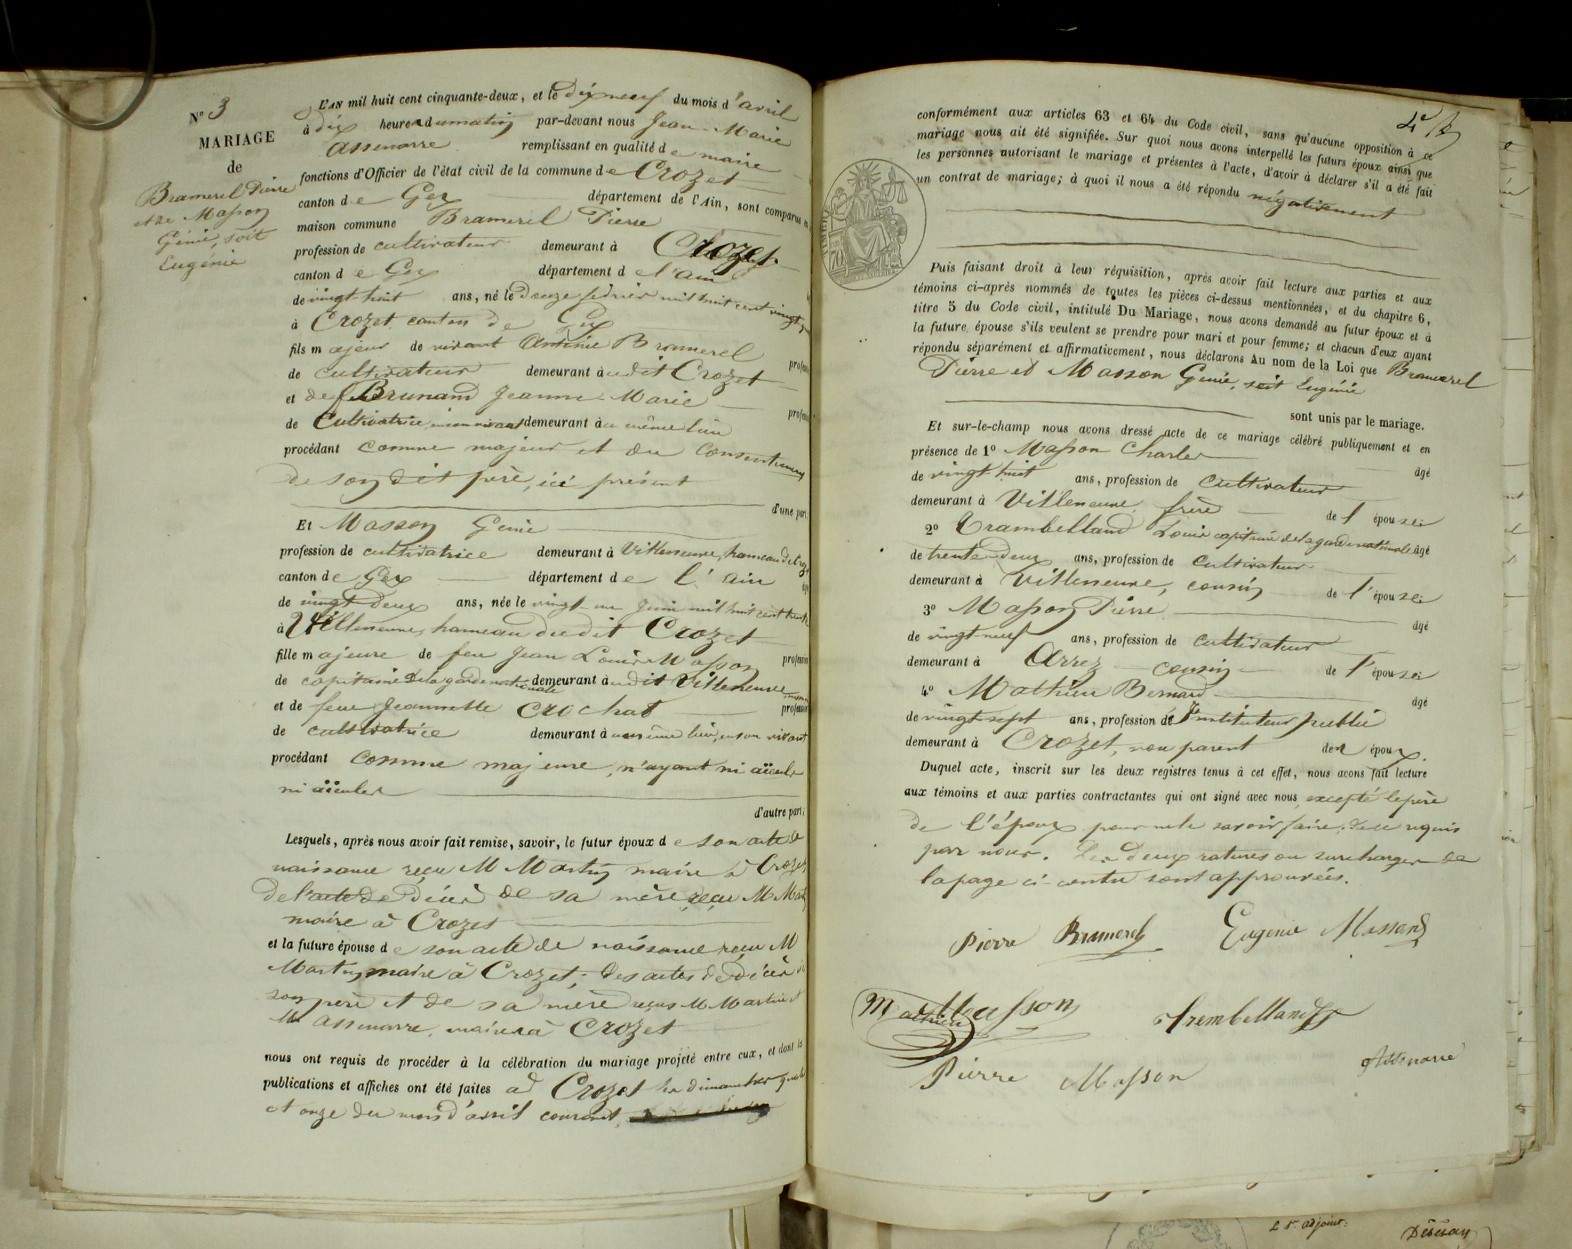 N° 3
MARIAGE
de
Bramerel Pierre
et de Masson
Génie, soit
Eugénie
L'AN mil huit cent cinquante-deux, et le dix neuf du mois d'avril
à dix heures du matin par-devant nous Jean Marie
Assenarre remplissant en qualité de maire
fonctions d'Officier de l'état civil de la commune de Crozet
canton de Gex département de l'Ain, sont comparus en
maison commune Bramerel Pierre
profession de cultivateur demeurant à Crozet
canton de Gex département de l'ain
de vingt huit ans, né le Douze février mil huit cent vingt
à Crozet canton de Gex
fils majeur de vivant Antoine Bramerel
de cultivateur demeurant audit Crozet
et de Brunand Jeanne Marie
de Cultivatrice demeurant au même lieu
procédant comme majeur et du Consentement
de son dit père, ici présent
d'une part
Et Masson Génie
profession de cultivatrice demeurant à Villeneuve, hameau de
canton de Gex département de l'ain
de vingt deux ans, née le vingt un Juin mil huit cent trente
à Villeneuve, hameau dudit Crozet
fille majeure de feu Jean Louis Masson
de capitaine de la garde nationale demeurant audit Villeneuve
et de feue Jeannette Crochat
de cultivatrice demeurant au même lieu, en son vivant
procédant comme majeure, n'ayant ni aïeuls
ni aïeules
d'autre part;
Lesquels, après nous avoir fait remise, savoir, le futur époux de son acte de
naissance reçu M Martin maire à Crozet
De l'acte de Décès de sa mère reçu M
maire à Crozet
et la future épouse de son acte de naissance reçu M
Martin, maire à Crozet; des actes de Décès de
son père et de sa mère reçus M Martin et
M Assenarre, maires à Crozet
nous ont requis de procéder à la célébration du mariage projeté entre eux, et dont les
publications et affiches ont été faites à Crozet les dimanches quatre
et onze du mois d'avril courant,
conformément aux articles 63 et 64 du Code civil, sans qu'aucune opposition à ce
mariage nous ait été signifiée. Sur quoi nous avons interpellé les futurs époux ainsi que
les personnes autorisant le mariage et présentes à l'acte, d'avoir à déclarer s'il a été fait
un contrat de mariage; à quoi il nous a été répondu négativement
Puis faisant droit à leur réquisition, après avoir fait lecture aux parties et aux
témoins ci-après nommés de toutes les pièces ci-dessus mentionnées, et du chapitre 6,
titre 5 du Code civil, intitulé Du Mariage, nous avons demandé au futur époux et à
la future épouse s'ils veulent se prendre pour mari et pour femme; et chacun d'eux ayant
répondu séparément et affirmativement, nous déclarons Au nom de la Loi que Bramerel
Pierre et Masson Génie, soit Eugénie
sont unis par le mariage.
Et sur-le-champ nous avons dressé acte de ce mariage célébré publiquement et en
présence de 1° Masson Charles âgé
de vingt huit ans, profession de cultivateur
demeurant à Villeneuve frère de l'épouse;
2° Trambelland Louis capitaine de la garde nationale âgé
de trente deux ans, profession de cultivateur
demeurant à Villeneuve, cousin de l'épouse;
3° Masson Pierre âgé
de vingt neuf ans, profession de cultivateur
demeurant à Arrez cousin de l'épouse;
4° Mathieu Bernard âgé
de vingt sept ans, profession d'Instituteur public
demeurant à Crozet, non parent des époux.
Duquel acte, inscrit sur les deux registres tenus à cet effet, nous avons fait lecture
aux témoins et aux parties contractantes qui ont signé avec nous excepté le père
de l'époux pour ne le savoir faire, de ce requis
par nous. Les deux ratures ou surcharges de
la page ci-contre sont approuvées.
Pierre Bramerel Eugénie Masson
Mathieu Masson Trembelland
Pierre Masson Assenarre